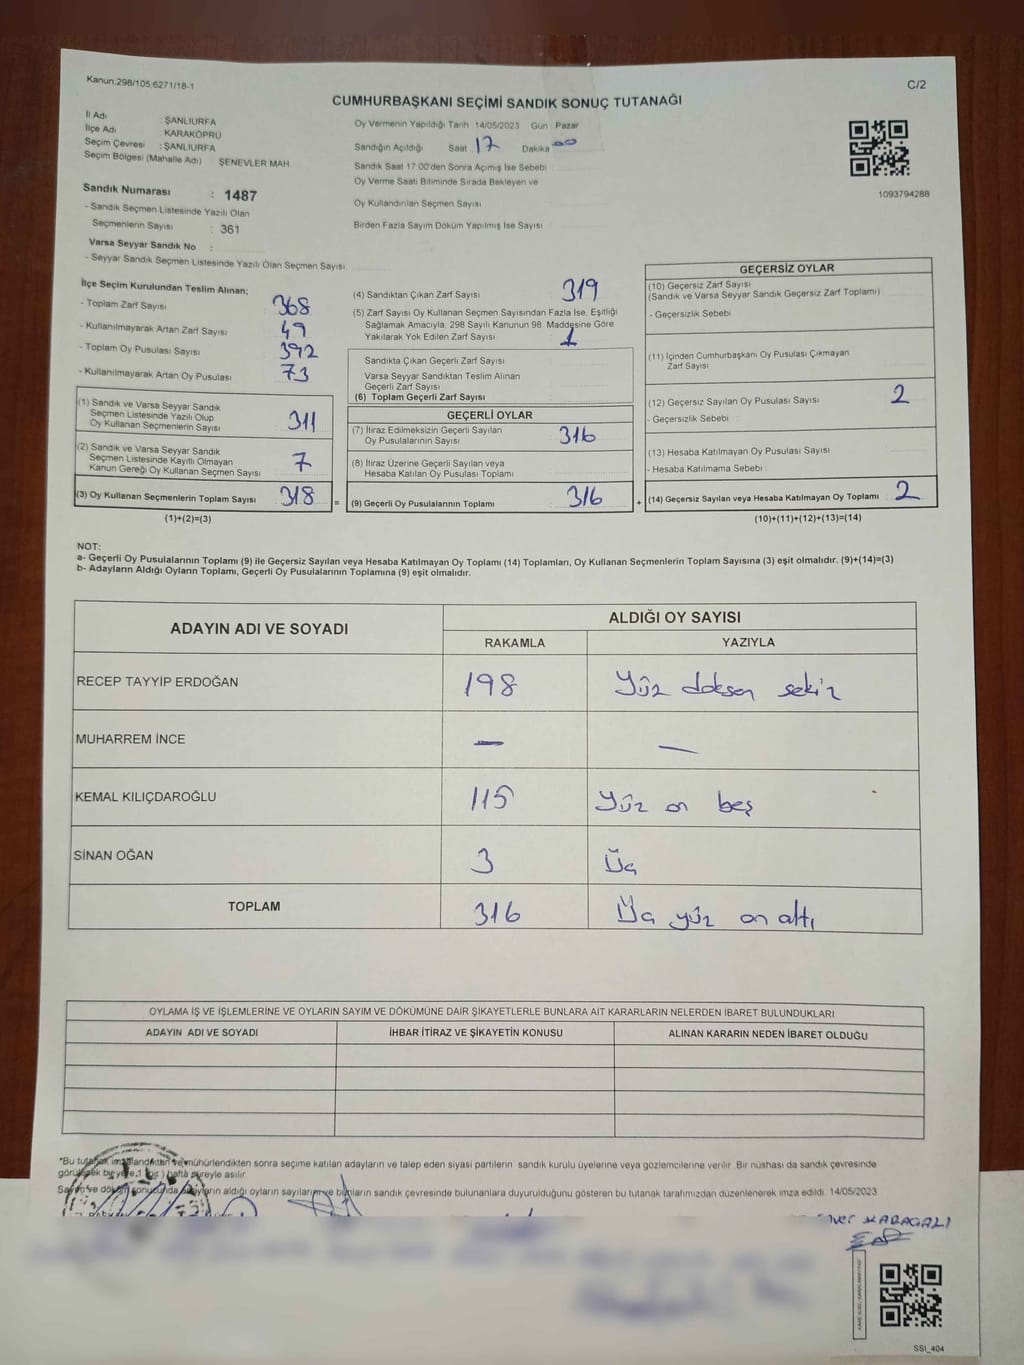 Kanun:298/105:6271/18-1
C/2
CUMHURBAŞKANI SEÇİMİ SANDIK SONUÇ TUTANAĞI
İl Adı : ŞANLIURFA
İlçe Adı KARAKÖPRÜ
Seçim Çevresi : ŞANLIURFA
Seçim Bölgesi (Mahalle Adı) ŞENEVLER MAH.
Sandık Numarası : 1487
- Sandık Seçmen Listesinde Yazılı Olan
Seçmenlerin Sayısı : 361
Varsa Seyyar Sandık No :
- Seyyar Sandık Seçmen Listesinde Yazılı Olan Seçmen Sayısı
Oy Vermenin Yapıldığı Tarih 14/05/2023 Gün Pazar
Sandığın Açıldığı Saat 17 Dakika 00
Sandık Saat 17:00'den Sonra Açımış İse Sebebi
Oy Verme Saati Bitiminde Sırada Bekleyen ve
Oy Kullandırılan Seçmen Sayısı
Birden Fazla Sayım Döküm Yapılmış İse Sayısı
1093794288
İlçe Seçim Kurulundan Teslim Alınan;
- Toplam Zarf Sayısı 368
- Kullanılmayarak Artan Zarf Sayısı 49
- Toplam Oy Pusulası Sayısı 392
- Kullanılmayarak Artan Oy Pusulası 73
(1) Sandık ve Varsa Seyyar Sandık
Seçmen Listesinde Yazılı Olup
Oy Kullanan Seçmenlerin Sayısı 311
(2) Sandık ve Varsa Seyyar Sandık
Seçmen Listesinde Kayıtlı Olmayan
Kanun Gereği Oy Kullanan Seçmen Sayısı 7
(3) Oy Kullanan Seçmenlerin Toplam Sayısı 318 =
(1)+(2)=(3)
(4) Sandıktan Çıkan Zarf Sayısı 319
(5) Zarf Sayısı Oy Kullanan Seçmen Sayısından Fazla İse, Eşitliği
Sağlamak Amacıyla, 298 Sayılı Kanunun 98. Maddesine Göre
Yakılarak Yok Edilen Zarf Sayısı 1
Sandıkta Çıkan Geçerli Zarf Sayısı
Varsa Seyyar Sandıktan Teslim Alınan
Geçerli Zarf Sayısı
(6) Toplam Geçerli Zarf Sayısı
GEÇERLİ OYLAR
(7) İtiraz Edilmeksizin Geçerli Sayılan
Oy Pusulalarının Sayısı 316
(8) İtiraz Üzerine Geçerli Sayılan veya
Hesaba Katılan Oy Pusulası Toplamı
(9) Geçerli Oy Pusulalarının Toplamı 316 +
GEÇERSİZ OYLAR
(10) Geçersiz Zarf Sayısı
(Sandık ve Varsa Seyyar Sandık Geçersiz Zarf Toplamı)
- Geçersizlik Sebebi
(11) İçinden Cumhurbaşkanı Oy Pusulası Çıkmayan
Zarf Sayısı
(12) Geçersiz Sayılan Oy Pusulası Sayısı 2
- Geçersizlik Sebebi :
(13) Hesaba Katılmayan Oy Pusulası Sayısı
- Hesaba Katılmama Sebebi
(14) Geçersiz Sayılan veya Hesaba Katılmayan Oy Toplamı 2
(10)+(11)+(12)+(13)=(14)
NOT:
a- Geçerli Oy Pusulalarının Toplamı (9) ile Geçersiz Sayılan veya Hesaba Katılmayan Oy Toplamı (14) Toplamları, Oy Kullanan Seçmenlerin Toplam Sayısına (3) eşit olmalıdır. (9)+(14)=(3)
b- Adayların Aldığı Oyların Toplamı, Geçerli Oy Pusulalarının Toplamına (9) eşit olmalıdır.
ADAYIN ADI VE SOYADI
ALDIĞI OY SAYISI
RAKAMLA YAZIYLA
RECEP TAYYİP ERDOĞAN 198 Yüz doksan sekiz
MUHARREM İNCE — —
KEMAL KILIÇDAROĞLU 115 Yüz on beş
SİNAN OĞAN 3 Üç
TOPLAM 316 Üç yüz on altı
OYLAMA İŞ VE İŞLEMLERİNE VE OYLARIN SAYIM VE DÖKÜMÜNE DAİR ŞİKAYETLERLE BUNLARA AİT KARARLARIN NELERDEN İBARET BULUNDUKLARI
ADAYIN ADI VE SOYADI İHBAR İTİRAZ VE ŞİKAYETİN KONUSU ALINAN KARARIN NEDEN İBARET OLDUĞU
"Bu tutanak imzalandıktan ve mühürlendikten sonra seçime katılan adayların ve talep eden siyasi partilerin sandık kurulu üyelerine veya gözlemcilerine verilir. Bir nüshası da sandık çevresinde
görülecek bir yere 1 (bir) hafta süreyle asılır.
Sayım ve döküm sonucunda adayların aldığı oyların sayılarını ve bunların sandık çevresinde bulunanlara duyurulduğunu gösteren bu tutanak tarafımızdan düzenlenerek imza edildi. 14/05/2023
KARAGALI
SSI_404